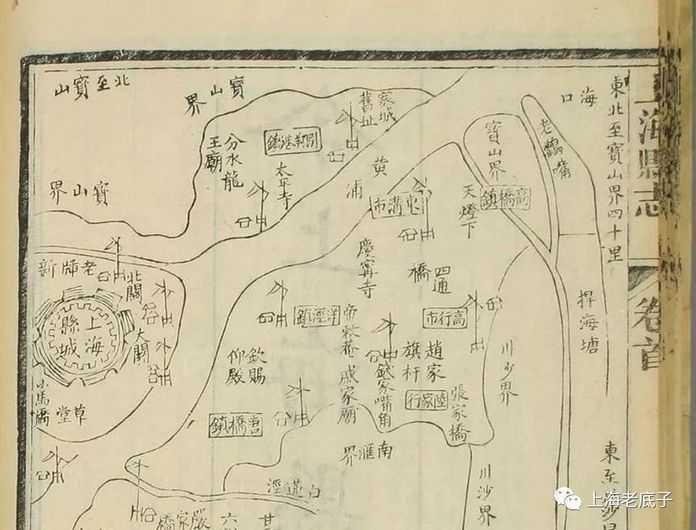 上海縣志
卷首
東北至寶山界四十里
東至川沙界
海口
老鸛嘴
捍海塘
寶山界
高橋鎮
天燈下
川沙界
川沙界
黃浦
東溝市
慶寧寺
四通橋
高行市
趙家旗杆
陸家行
張家橋
錢家嘴角
帝敕菴
戚家廟
南滙界
洋涇鎮
欽賜仰殿
塘橋鎮
白蓮涇
嚴家橋
舊址
家城
引翔港鎮
太平寺
分水龍王廟
寶山界
北至寶山
寶山界
老師新
北關
大關
上海縣城
小馬橋
草堂
上海老底子